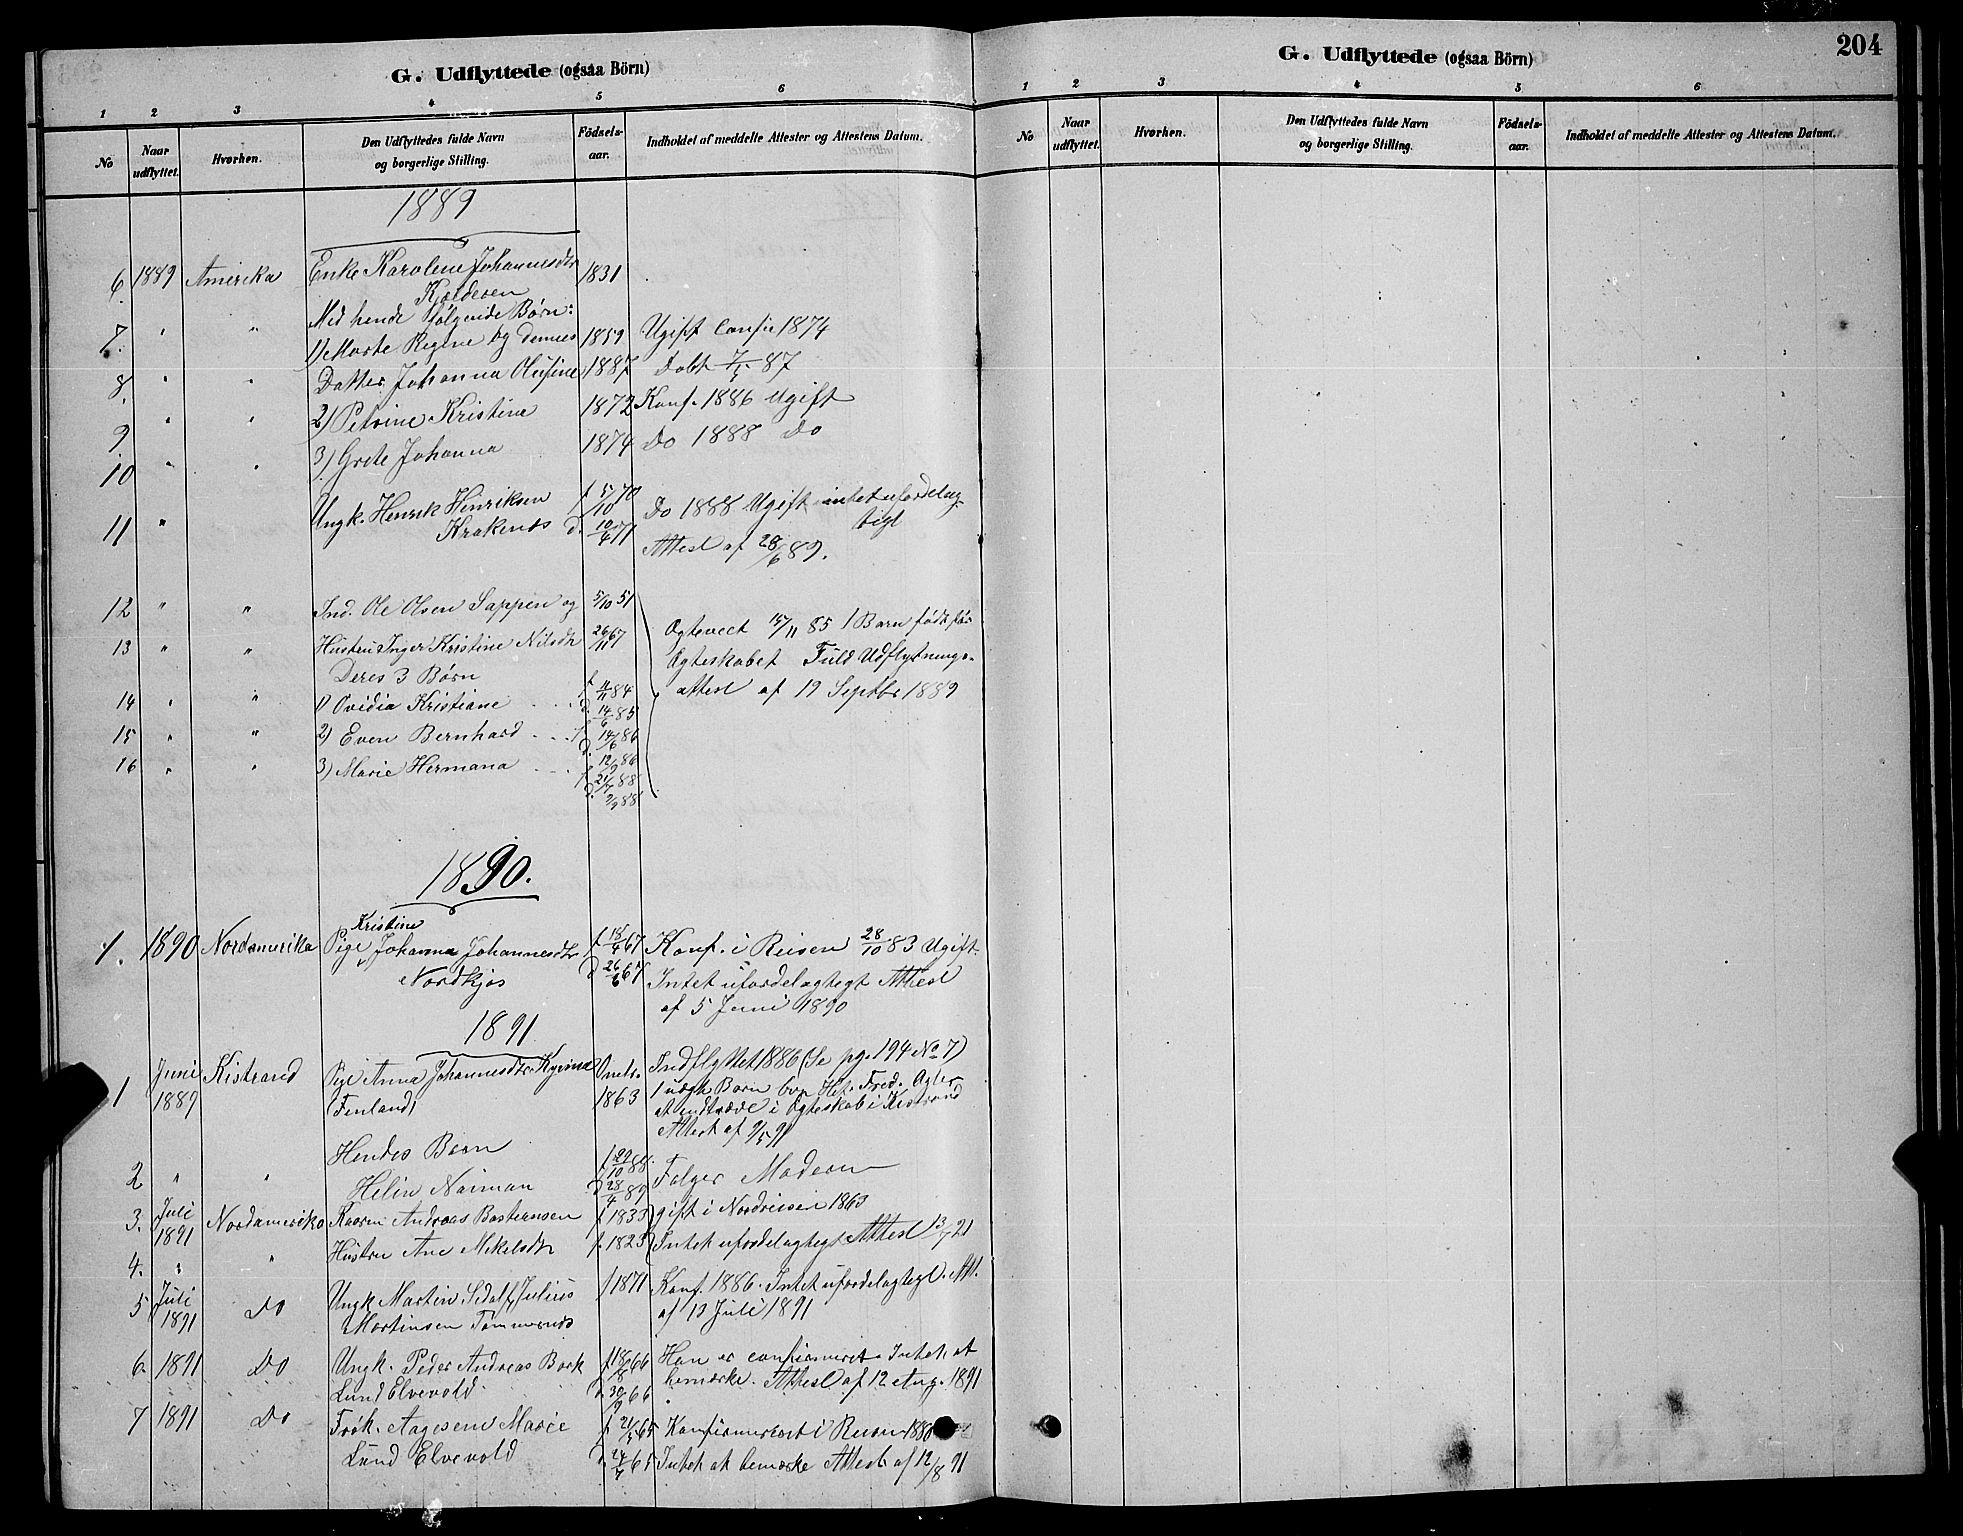 G. Udflyttede (ogsaa Börn)
1 2 3 4 5 6
No
Naar udflyttet.
Hvorhen.
Den Udflyttedes fulde Navn og borgerlige Stilling.
Födsels-aar.
Indholdet af meddelte Attester og Attestens Datum.
1889
6. 1889 Amerika Enke Karolene Johannesdtr 1831
Kjelderen
Med hende følgende Børn:
7. " " 1) Marte Regine og dennes 1859 Ugift Confir 1874
8. " " Datter Johanna Olufine 1887 Døbt 7/5 87
9 " " 2) Petrine Kristine 1872 Konf. 1886 Ugift
10 " " 3) Grete Johanna 1874 Do 1888 Do
11 " Ungk. Henrik Henriksen f 5/10 70 Do 1888 Ugift intet ufordelag-
Krakenes d. 10/6 71 tigt
Attest af 28/6 89.
12 " " Ind. Ole Olsen Sappen og 5/10 51
13 " " Hustru Inger Kristine Nilsdtr 26/11 67 Ægteviet 15/11 85 1 Barn født før
Deres 3 Børn Ægteskabet Fuld Udflytnings-
14 " " 1) Ovidia Kristiane f 11/11 84 attest af 19 Septbr 1889
d. 14/6 85
15 " " 2) Even Bernhard f 14/6 86
d. 12/9 86
16 " " 3) Marie Hermana f 21/7 88
d. 2/9 88
1890.
1. 1890 Nordamerika Pige Kristine Johanna Johannesdtr f 18/4 67 Konf. i Reisen 28/10 83 Ugift
Nordkjos d 26/6 67 Intet ufordelagtegt Attest
af 5 Juni 1890
1891
1 Juni 1889 Kistrand Pige Anna Johannesdtr Indflyttet 1886 (Se pg. 194 No 7)
(Finland) 1863 1 uægte Barn
at indtræde i Ægteskab i Kistrand
Attest af 9/5 91
Hendes Barn
2 " " Helin Naiman f 29/10 88 Følger Moderen
d 28/4 89
3. Juli 1891 Nordamerika Andreas Bastiansen f 1833 gift i Nordreisen 1863
4. " " Hustru Ane Mikelsdtr f. 1823 Intet ufordelagtegt Attest 13/7 91
5 Juli 1891 Do Ungk Martin Julius f 1871 Konf. 1886. Intet ufordelagtegt. Att.
Martinsen af 13 Juli 1891
6. 1891 Do Ungk. Peder Andreas Bork f 18/8 66 Han er confirmeret. Intet at
Lund Elvevold d. 30/9 66 bemærke. Attest af 12 Aug. 1891
7 1891 Do Frøk. Aagesine Marie f 21/5 65 Konfirmeret i Reisen 1880
Lund Elvevold d. 24/7 65 Intet at bemærke Attest af 12/8 91
G. Udflyttede (ogsaa Börn)
204
1 2 3 4 5 6
No
Naar udflyttet.
Hvorhen.
Den Udflyttedes fulde Navn og borgerlige Stilling.
Födsels-aar.
Indholdet af meddelte Attester og Attestens Datum.